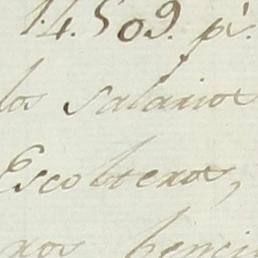 14.509. p.
los salarios
Escolteros,
nos